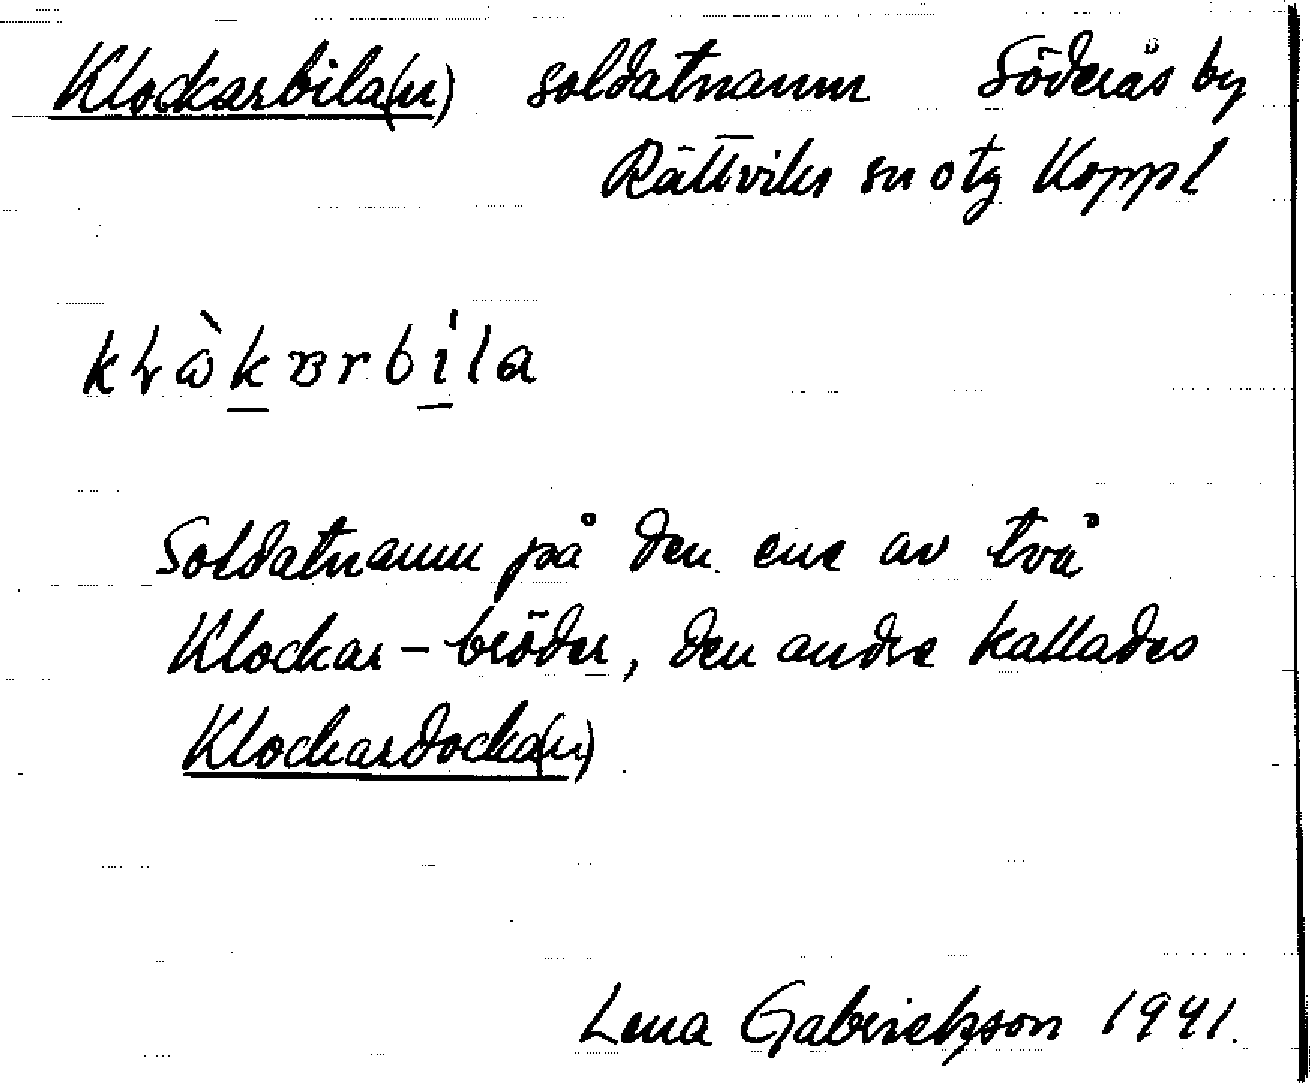 Klockarbila(n) soldatnamn Söderås by
Rättviks sn o tg Koppl
Soldatnamn på den ene av två
Klockar-bröder, den andre kallades
Klockardocka(n)
Lena Gabrielsson 1941.